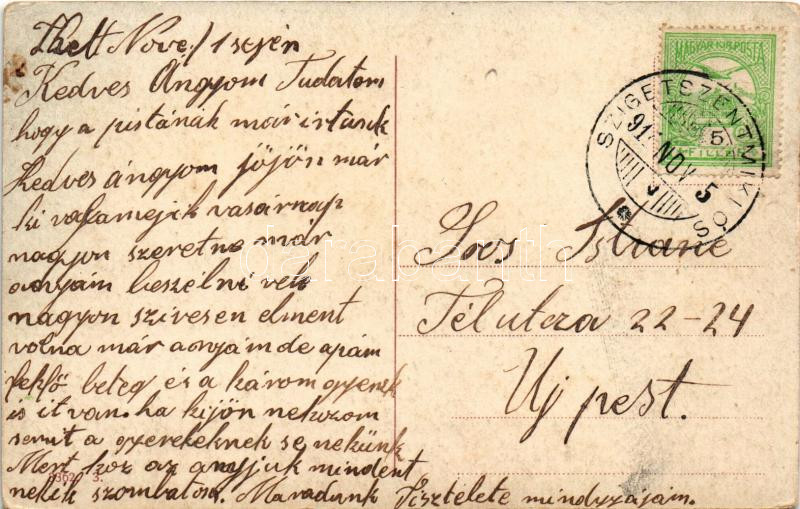 Kelt Nove/1 sején
Kedves Ángyom Tudatom
hogy a pistának már irtunk
Kedves ángyom jöjön már
ki valamejik vasárnap
nagyon szeretne már
anyám beszélni vele
nagyon szivesen elment
volna már anyám de apám
fekfő beteg és a károm gyerek
is it van. ha kijön ne hozzom
semit a gyerekeknek se nekünk
Mert hoz az anyjuk mindent
nekik szombaton. Maradunk Tisztelete mindyzájám.
MAGYAR KIR. POSTA
5
SZIGETSZENTMIKLÓS
NOV 5
Soós Istváné
Tél utcza 22-24
Uj pest.
darabanth
3.